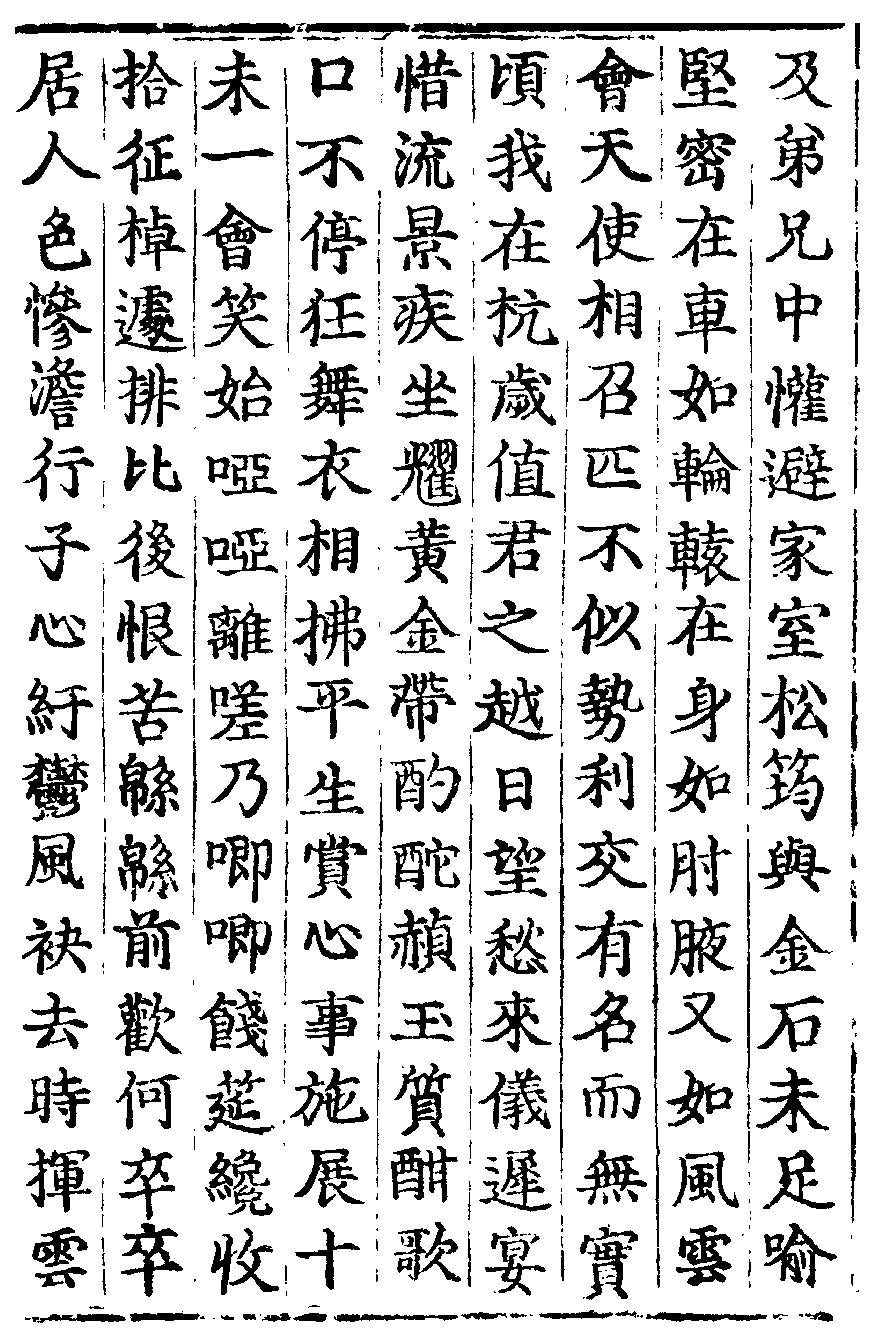 及弟兄中懽避家室松筠與金石未足喻
堅密在車如輪轅在身如肘腋又如風雲
會天使相召匹不似勢利交有名而無實
頃我在杭歲值君之越日望愁來儀遲宴
惜流景疾坐耀黃金帶酌酡赬玉質酣歌
口不停狂舞衣相拂平生賞心事施展十
未一會笑始啞啞離嗟乃唧唧餞筵纔收
拾征棹遽排比後恨苦緜緜前歡何卒卒
居人色慘澹行子心紆鬱風袂去時揮雲